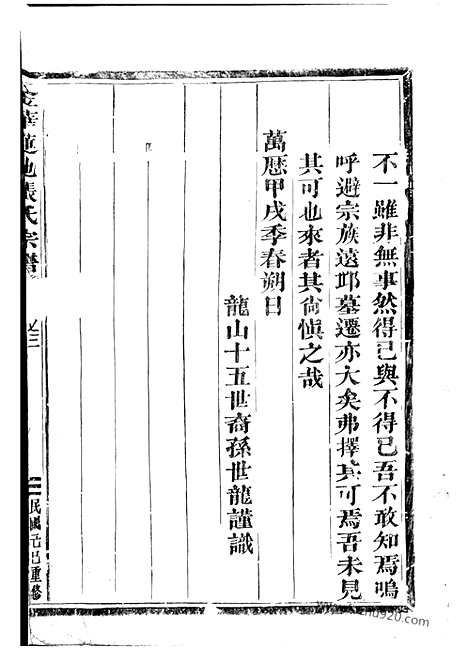 不一雖非無事然得已與不得已吾不敢知焉嗚
呼避宗族遠邱墓遷亦大矣弗擇其可焉吾未見
其可也來者其尙愼之哉
萬曆甲戌季春朔日
龍山十五世裔孫世龍謹識
金華蓮池張氏宗譜
卷三
民國己巳重修